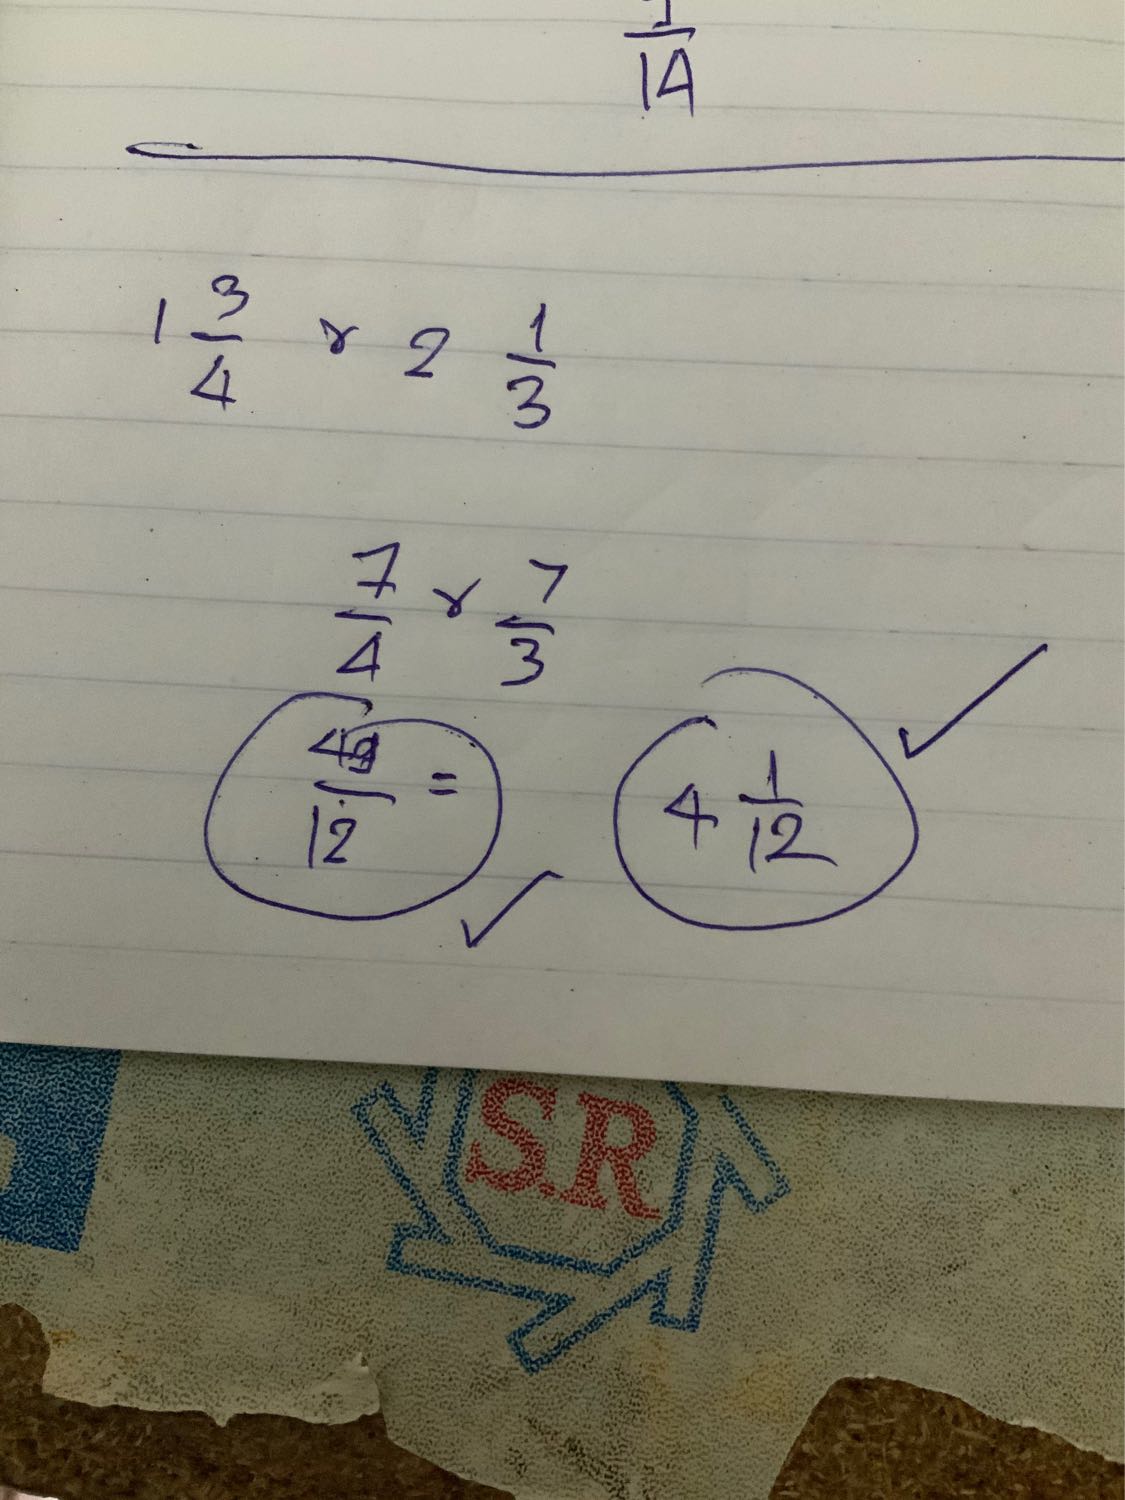 1/14
1 3/4 × 2 1/3
7/4 × 7/3
49/12 = 4 1/12
S.R